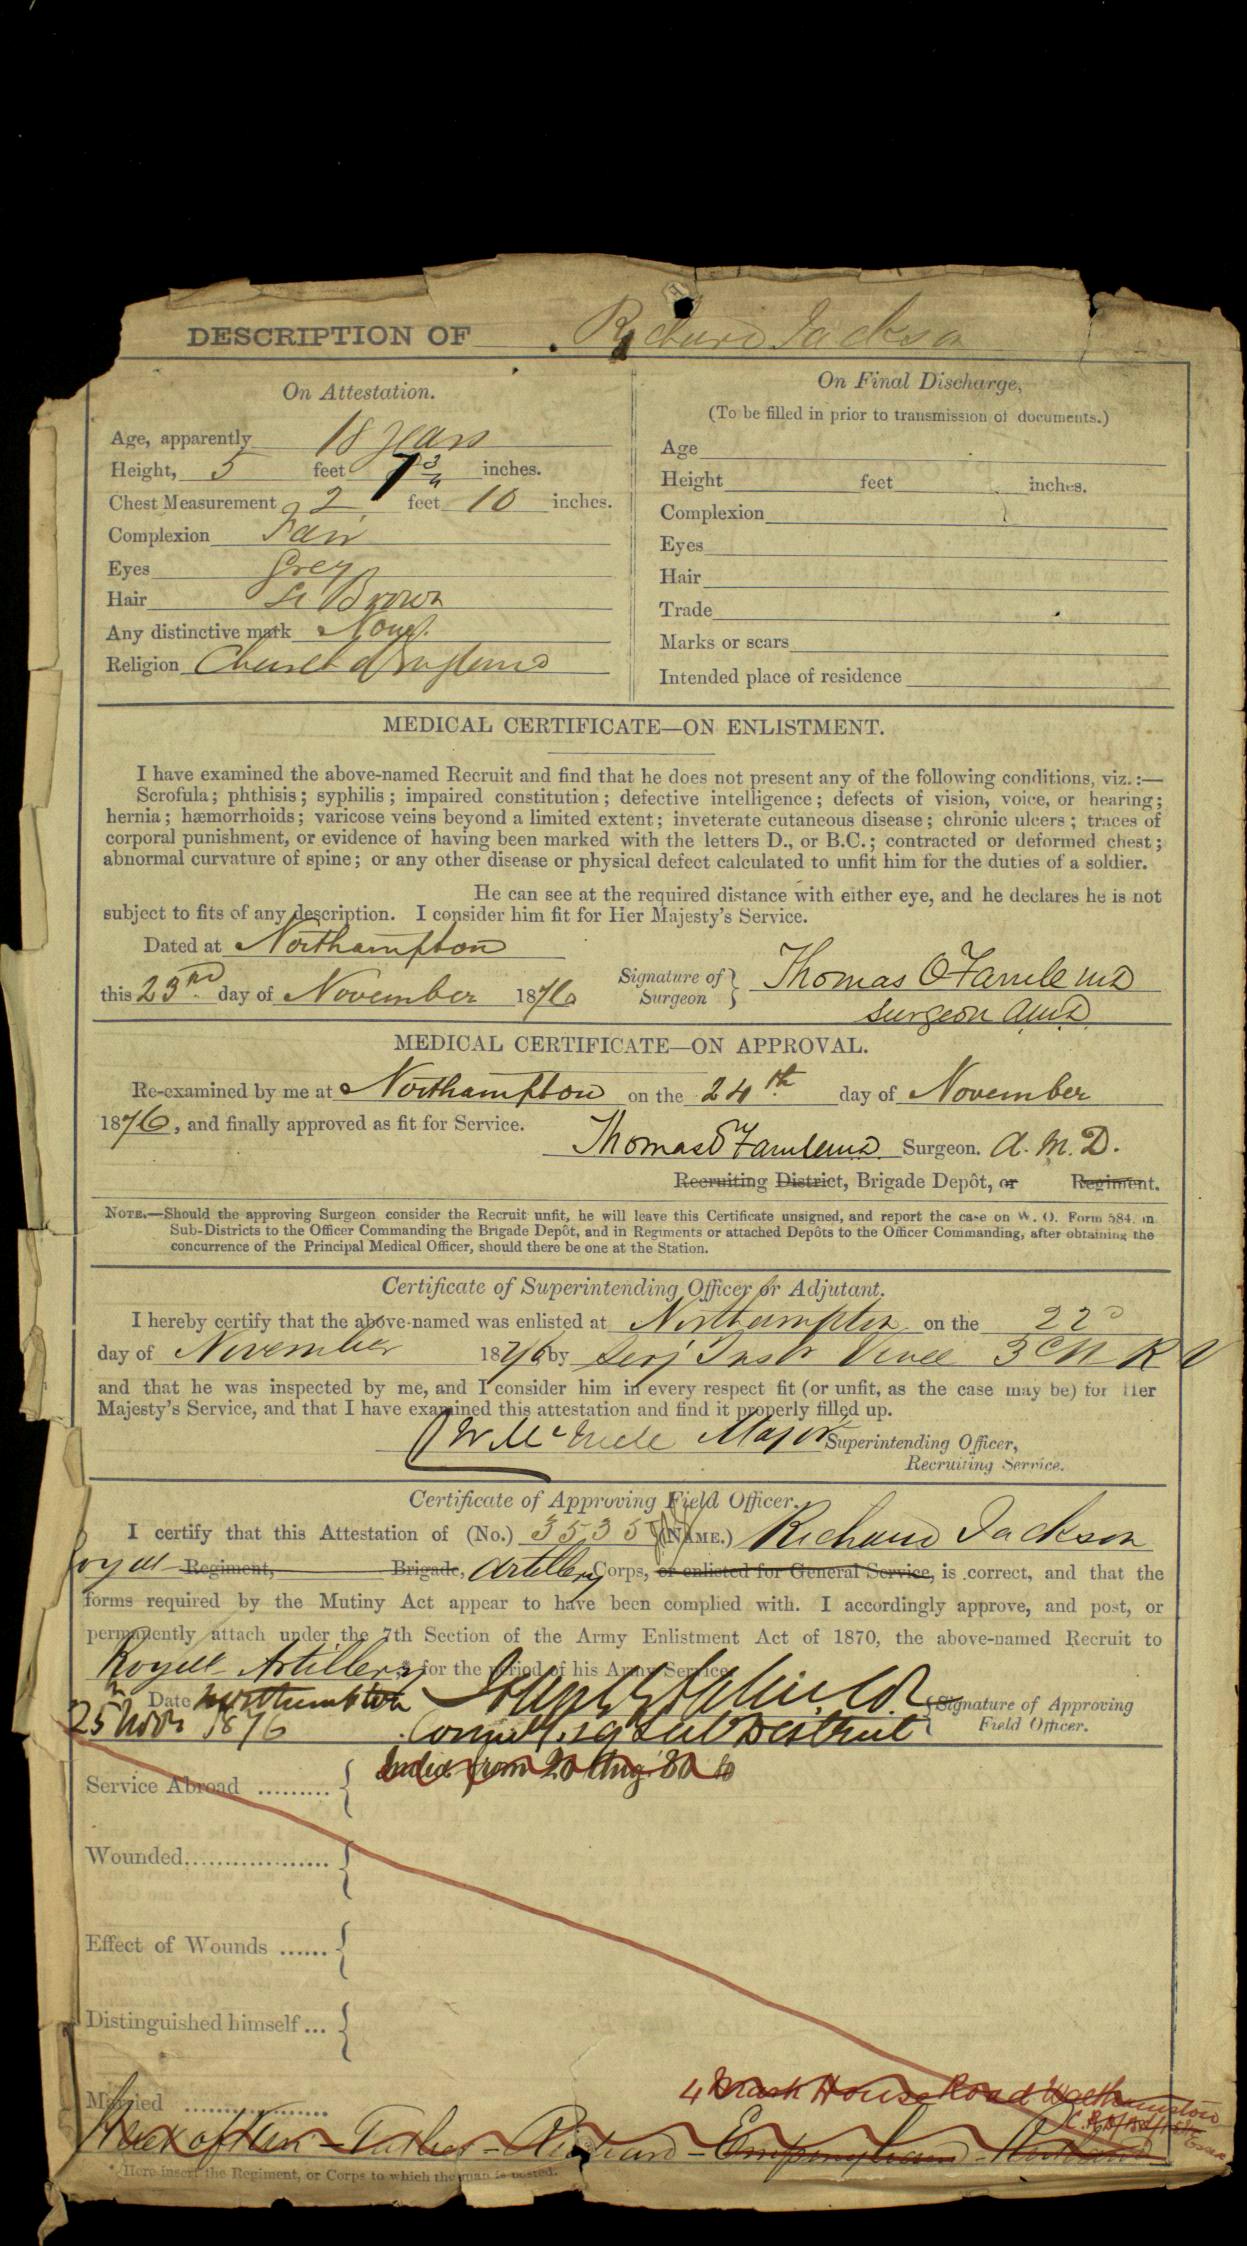 DESCRIPTION OF Richard Jackson
On Attestation.
Age, apparently 18 years
Height, 5 feet 7 3/4 inches.
Chest Measurement 2 feet 10 inches.
Complexion Fair
Eyes Grey
Hair Lt Brown
Any distinctive mark None
Religion Church of England
On Final Discharge,
(To be filled in prior to transmission of documents.)
Age
Height feet inches.
Complexion
Eyes
Hair
Trade
Marks or scars
Intended place of residence
MEDICAL CERTIFICATE—ON ENLISTMENT.
I have examined the above-named Recruit and find that he does not present any of the following conditions, viz.:—
Scrofula; phthisis; syphilis; impaired constitution; defective intelligence; defects of vision, voice, or hearing;
hernia; hæmorrhoids; varicose veins beyond a limited extent; inveterate cutaneous disease; chronic ulcers; traces of
corporal punishment, or evidence of having been marked with the letters D., or B.C.; contracted or deformed chest;
abnormal curvature of spine; or any other disease or physical defect calculated to unfit him for the duties of a soldier.
He can see at the required distance with either eye, and he declares he is not
subject to fits of any description. I consider him fit for Her Majesty's Service.
Dated at Northampton
this 23rd. day of November 1876
Signature of Surgeon Thomas O'Farrell MD
Surgeon AMD
MEDICAL CERTIFICATE—ON APPROVAL.
Re-examined by me at Northampton on the 24th day of November
1876, and finally approved as fit for Service.
Thomas O'Farrell MD Surgeon. A.M.D.
Recruiting District, Brigade Depôt, or Regiment.
NOTE.—Should the approving Surgeon consider the Recruit unfit, he will leave this Certificate unsigned, and report the case on W. O. Form 584, in
Sub-Districts to the Officer Commanding the Brigade Depôt, and in Regiments or attached Depôts to the Officer Commanding, after obtaining the
concurrence of the Principal Medical Officer, should there be one at the Station.
Certificate of Superintending Officer or Adjutant.
I hereby certify that the above-named was enlisted at Northampton on the 22d
day of November 1876 by Serj Instr 3d N R V
and that he was inspected by me, and I consider him in every respect fit (or unfit, as the case may be) for Her
Majesty's Service, and that I have examined this attestation and find it properly filled up.
Major Superintending Officer,
Recruiting Service.
Certificate of Approving Field Officer.
I certify that this Attestation of (No.) 3535 (NAME.) Richard Jackson
Royal Regiment, Brigade, Artillery Corps, or enlisted for General Service, is correct, and that the
forms required by the Mutiny Act appear to have been complied with. I accordingly approve, and post, or
permanently attach under the 7th Section of the Army Enlistment Act of 1870, the above-named Recruit to
Royal Artillery * for the period of his Army Service.
Date Northampton
25 Novr 1876
Sub District
Signature of Approving
Field Officer.
Service Abroad ......... India from 20 Aug 80 to
Wounded..................
Effect of Wounds ......
Distinguished himself ...
Married ..................
4 Mark House Road Walthamstow
Essex
Next of Kin - Father - Richard - Empingham - Rutland
* Here insert the Regiment, or Corps to which the man is posted.